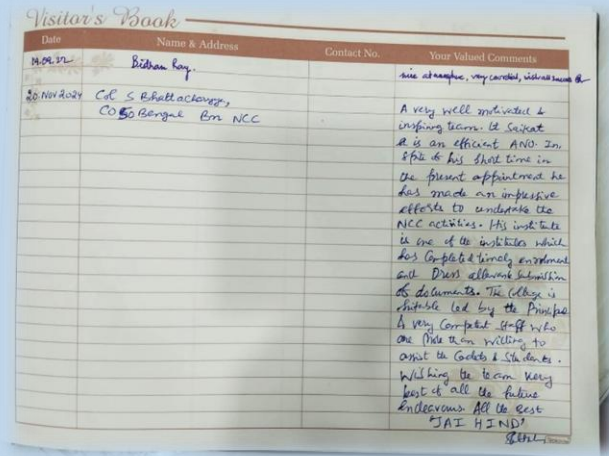 Visitor's Book
Date Name & Address Contact No. Your Valued Comments
Bidhan Ray. nice atmosphere, very cordial,
20.Nov 2024 Col S Bhattacharyya,
CO 50 Bengal Bn NCC
A very well motivated &
inspiring team. Lt Saikat
is an efficient ANO. In
spite of his short time in
the present appointment he
has made an impressive
efforts to undertake the
NCC activities. His institute
is one of the institutes which
has completed timely enrolment
and Dress allowance submission
of documents. The College is
led by the Principal
& very competent staff who
are more than willing to
assist the Cadets & Students.
Wishing the team very
best of all the future
endeavours. All the best
'JAI HIND'